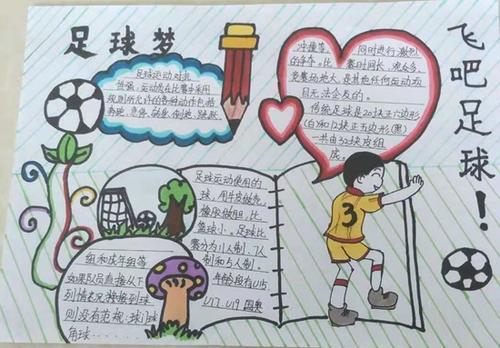 足球梦
足球运动对抗
性强,运动员在比赛中采用
规则所允许的各种动作包括
奔跑、急停、转身、倒地、跳跃、
冲撞等, 同时进行激烈
的争夺。比赛时间长、观众多、
竞赛场地大,是其他任何运动项
目无法企及的。
传统足球是20块正六边形
(白)和12块正五边形(黑)
一共由32块皮组
成。
飞吧足球!
足球运动使用的
球,用牛皮做壳,
橡胶做胆,比
篮球小。足球比
赛分为11人制、7人
制和5人制。
年龄段有U15
U17、U19 国奥
组和成年组等
如果队员直接从下
列情况接到球
则没有犯规:球门球
角球……
3